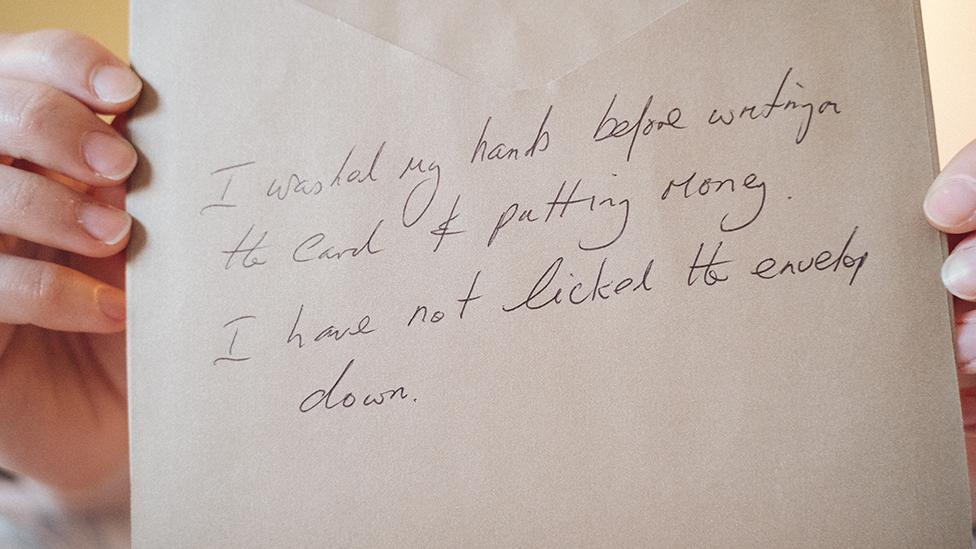 I washed my hands before writing on
the card & putting money.
I have not licked the envelop
down.